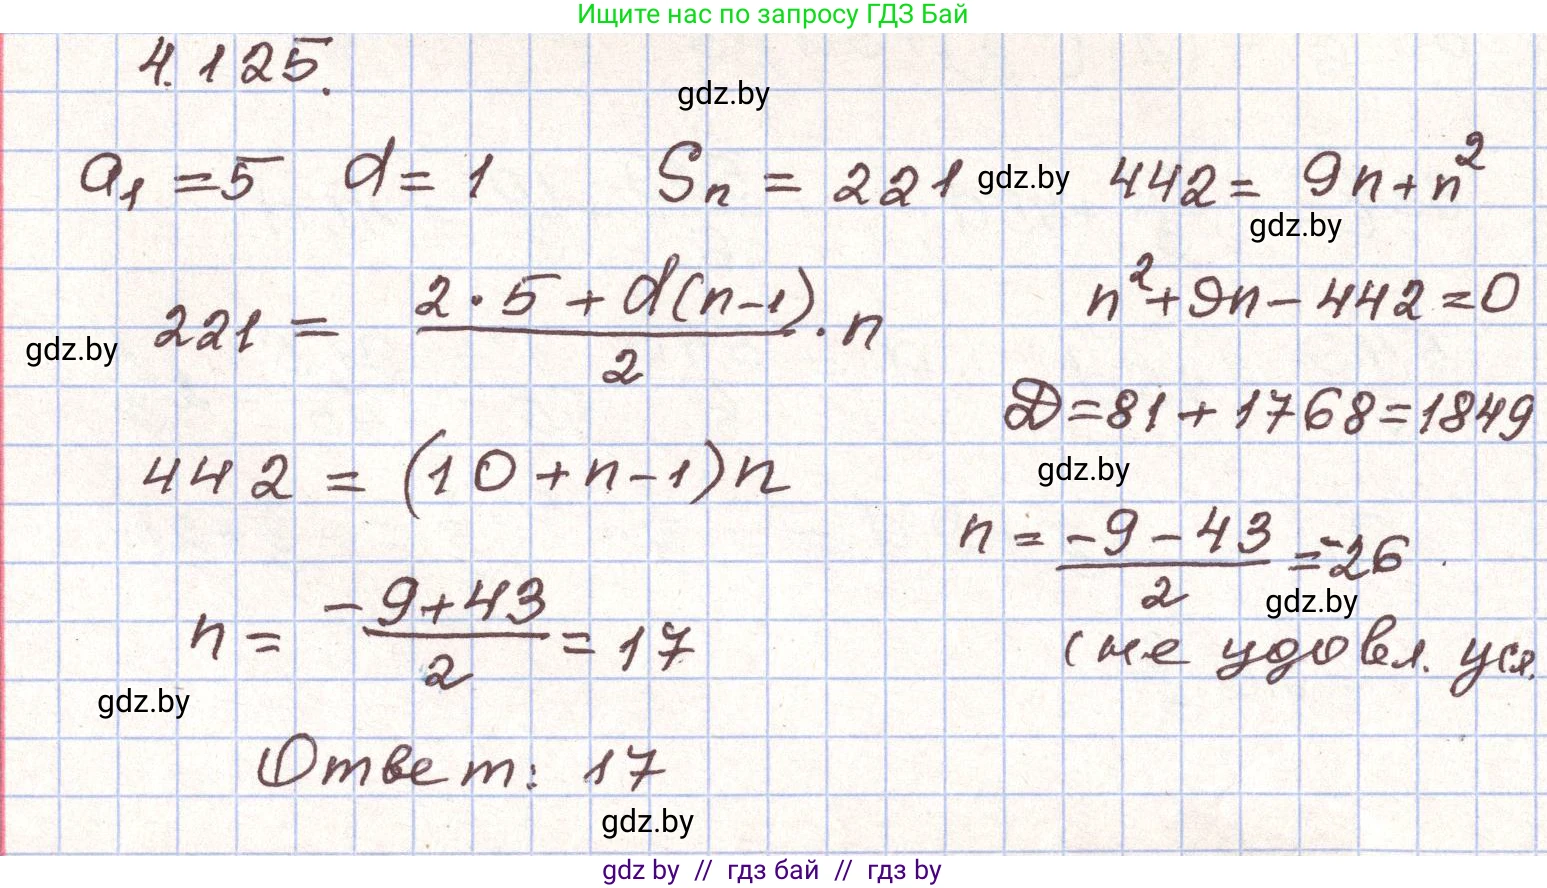 Ищите нас по запросу ГДЗ Бай
4.125.
gdz.by
a₁ = 5 d = 1 Sₙ = 221 gdz.by 442 = 9n + n²
gdz.by
221 = (2 · 5 + d(n-1))/2 · n
n² + 9n - 442 = 0
gdz.by
D = 81 + 1768 = 1849
442 = (10 + n - 1)n
gdz.by
n = (-9 - 43)/2 = -26
gdz.by
(не удовл. усл.
n = (-9 + 43)/2 = 17
gdz.by
Ответ: 17
gdz.by
gdz by // гдз бай // гдз by